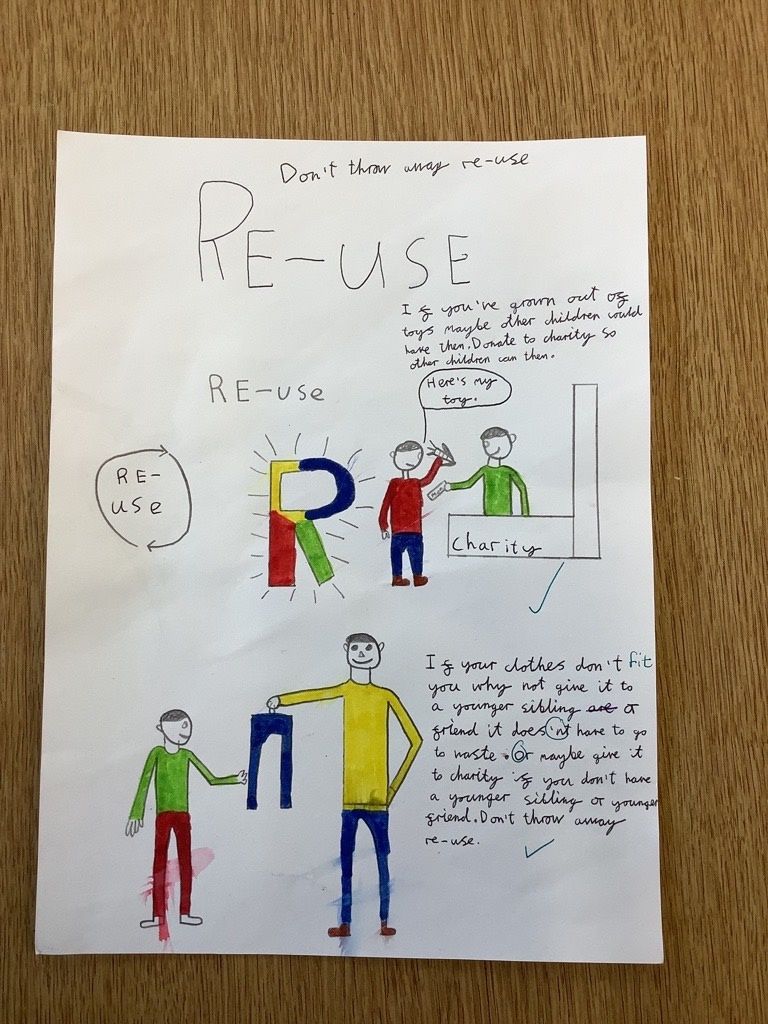 Don't throw away re-use
RE-USE
If you've grown out of
toys maybe other children could
have then. Donate to charity so
other children can then.
RE-use
Here's my
toy.
RE-
use
R
Charity
If your clothes don't fit
you why not give it to
a younger sibling are or
friend it does'nt have to go
to waste. Or maybe give it
to charity if you don't have
a younger sibling or younger
friend. Don't throw away
re-use.